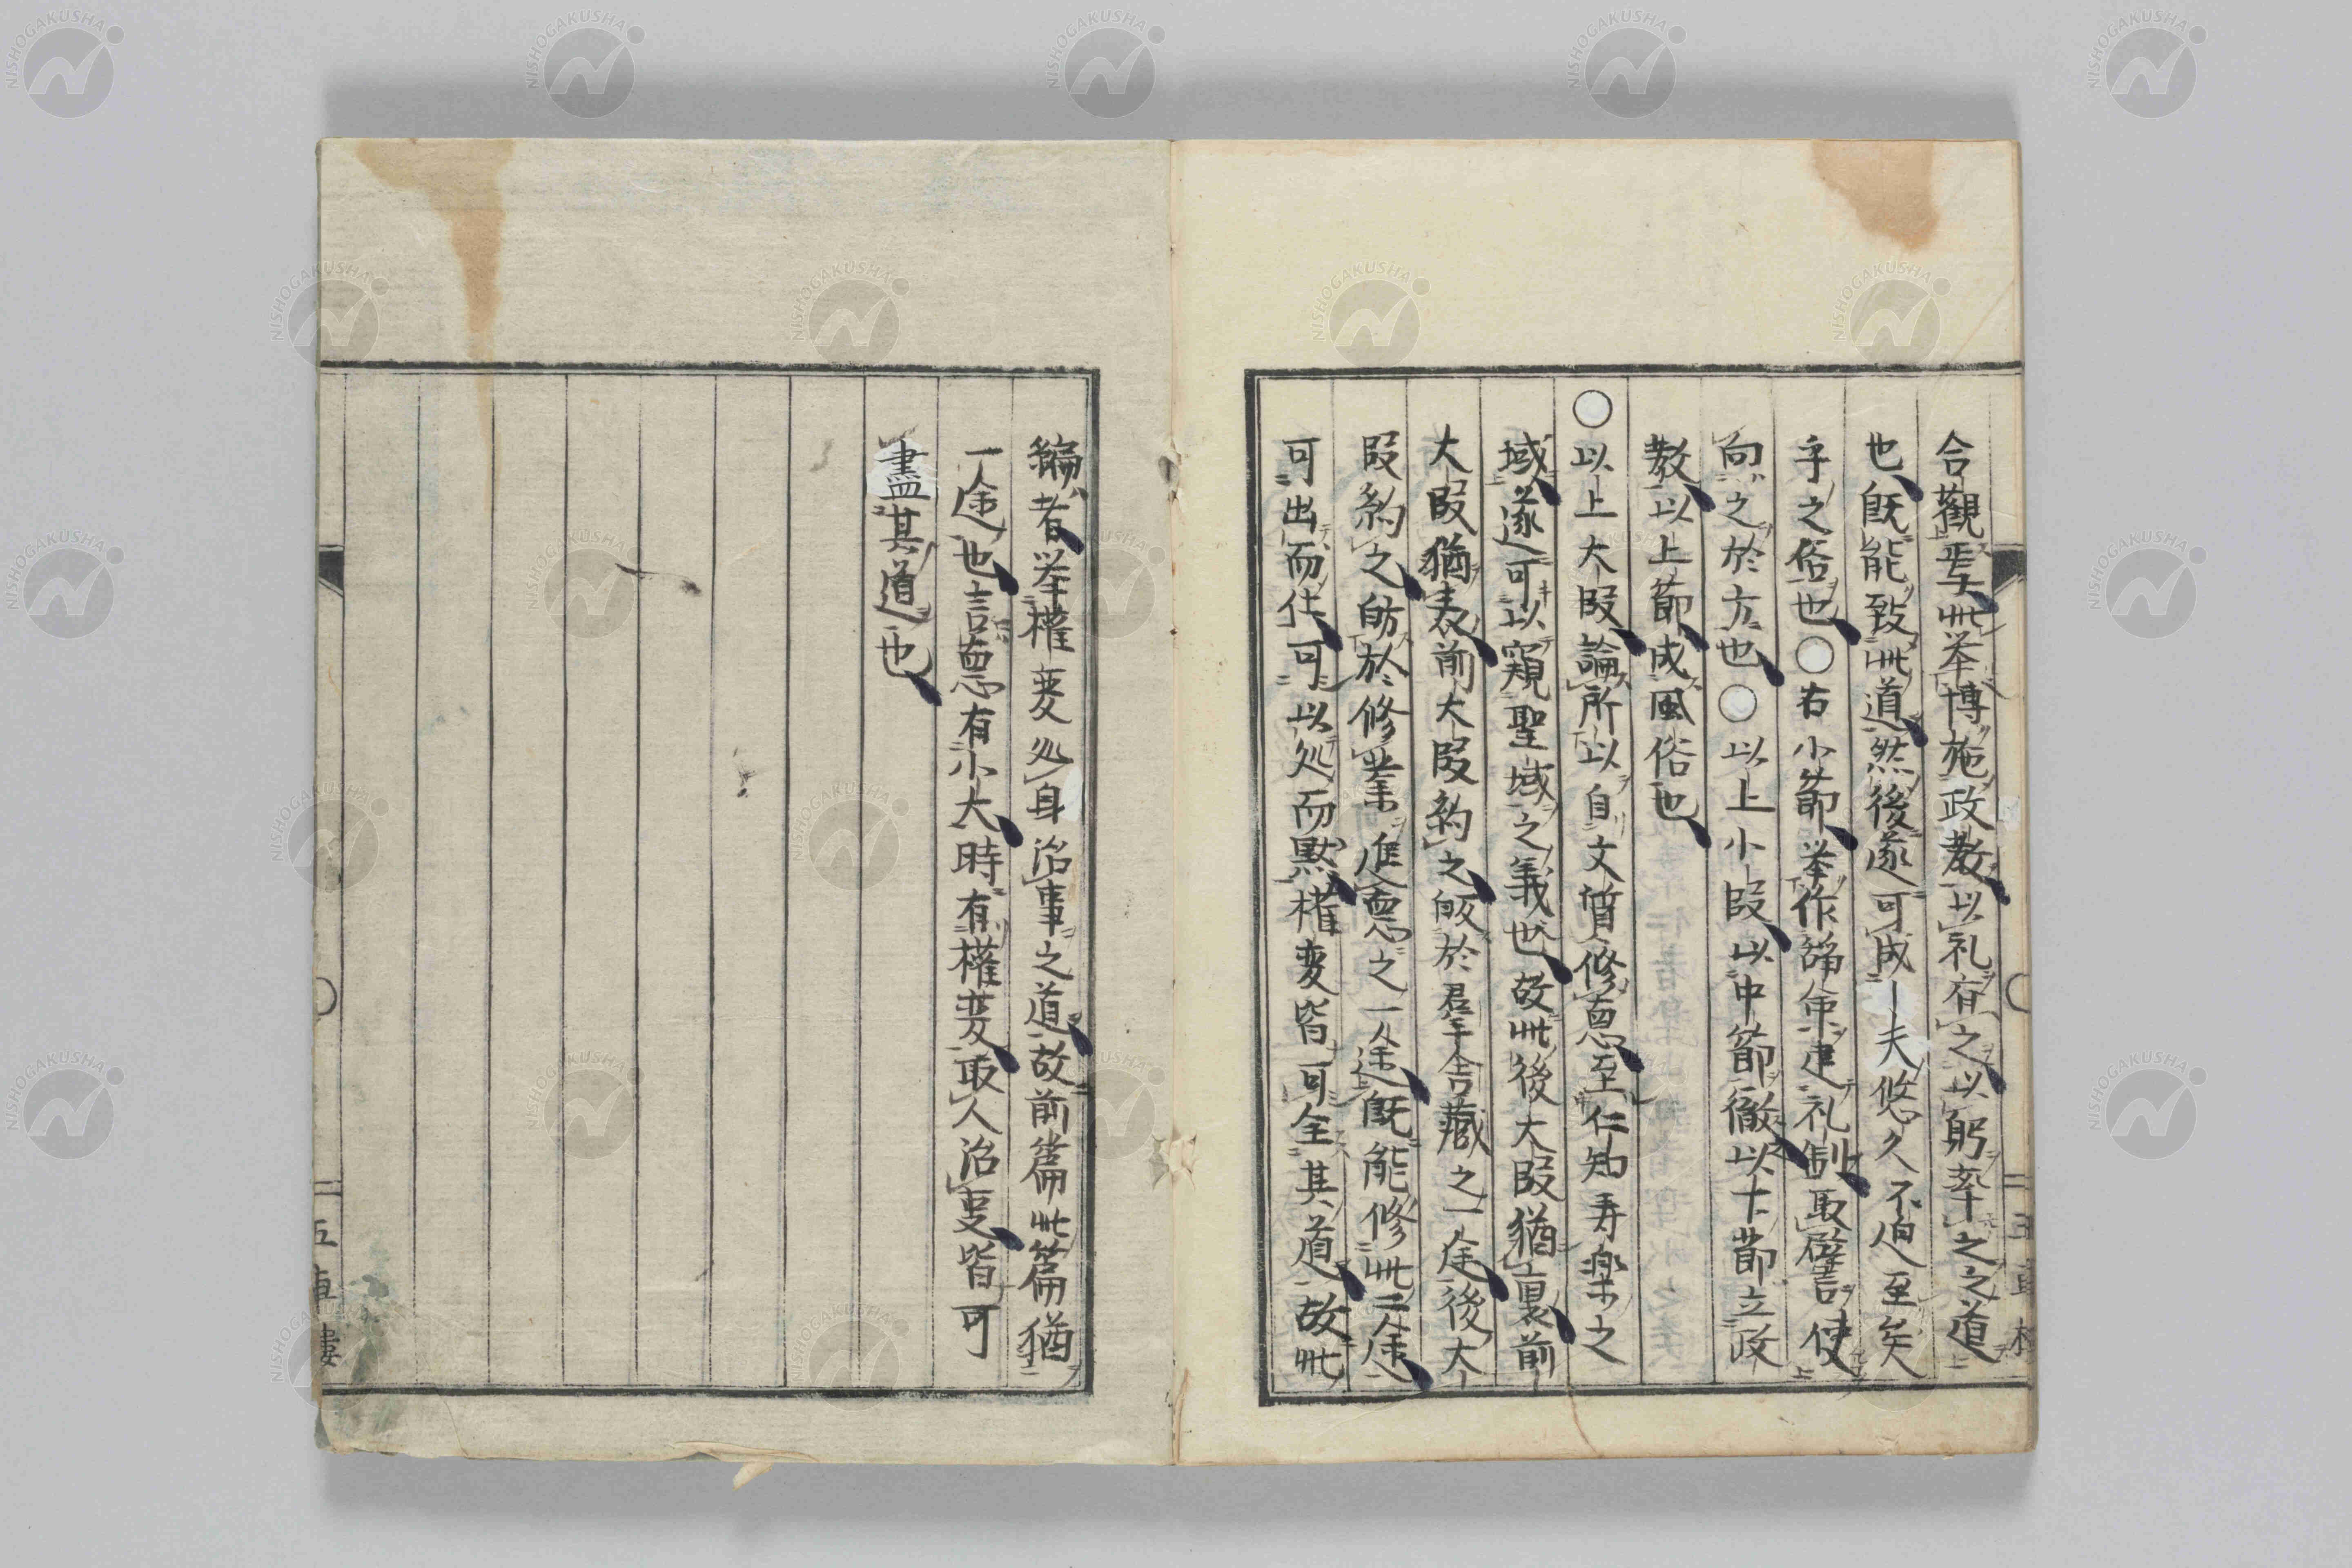 合觀焉此举博施政教以礼有之以躬率之之道
也既能致此道然後遂可成一夫悠久不迫至矣
乎之俗也○右小節举作誥命建礼制取譬使
向之於方也○以上小段以中節徹以下節立政
教以上節成風俗也
○以上大段論所以自文質修悳至仁知寿楽之
域遂可以窺聖域之義也故此後大段猶裏前
大段猶表前大段約之皈於羣含藏之一途後大
段約之皈於修業進悳之一途既能修此二途
可出而仕可以処而黙權変皆可全其道故此
編者举權変処身治事之道故前篇此篇猶
一途也言悳有小大時有權変取人治吏皆可
盡其道也
五車樓
NISHOGAKUSHA